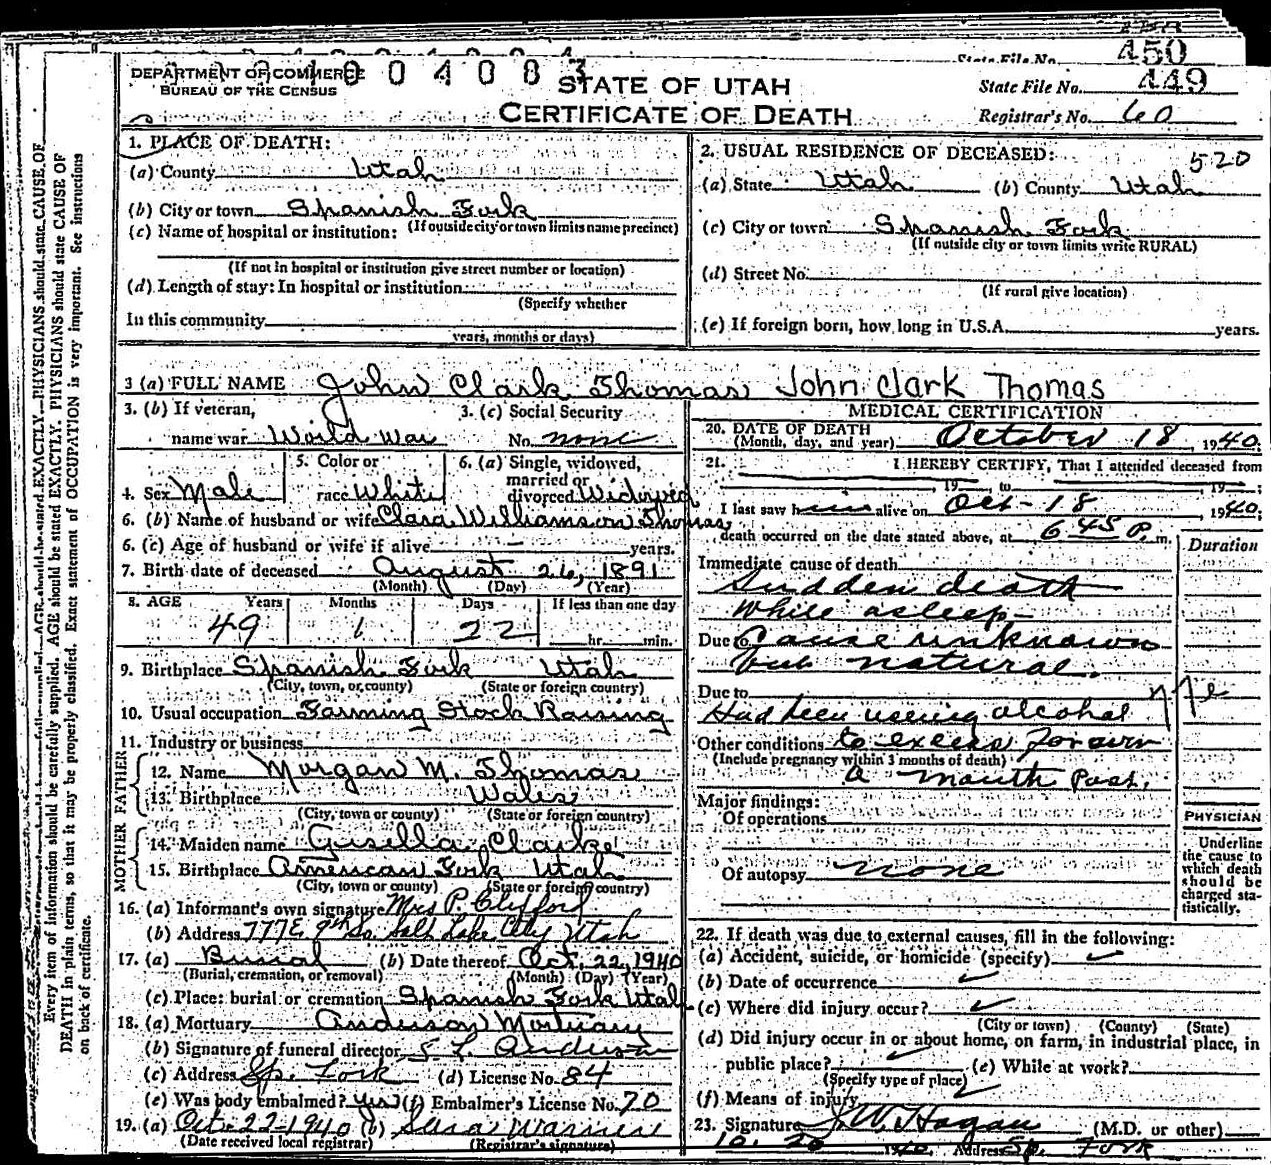 450
State File No.
DEPARTMENT OF COMMERCE
BUREAU OF THE CENSUS
STATE OF UTAH
CERTIFICATE OF DEATH
State File No. 449
Registrar's No. 60
1. PLACE OF DEATH:
(a) County Utah
(b) City or town Spanish Fork
(If outside city or town limits name precinct)
(c) Name of hospital or institution:
(If not in hospital or institution give street number or location)
(d) Length of stay: In hospital or institution
(Specify whether
In this community
years, months or days)
2. USUAL RESIDENCE OF DECEASED: 520
(a) State Utah (b) County Utah
(c) City or town Spanish Fork
(If outside city or town limits write RURAL)
(d) Street No.
(If rural give location)
(e) If foreign born, how long in U.S.A. years.
3 (a) FULL NAME John Clark Thomas John Clark Thomas
3. (b) If veteran, 3. (c) Social Security
name war World War No. none
4. Sex Male 5. Color or race White 6. (a) Single, widowed, married or divorced Widowed
6. (b) Name of husband or wife Clara Williamson Thomas
6. (c) Age of husband or wife if alive — years.
7. Birth date of deceased August 26, 1891
(Month) (Day) (Year)
8. AGE Years Months Days If less than one day
49 1 22 hr. min.
9. Birthplace Spanish Fork Utah
(City, town, or county) (State or foreign country)
10. Usual occupation Farming Stock Raising
11. Industry or business
FATHER
12. Name Morgan M. Thomas
13. Birthplace Wales
(City, town or county) (State or foreign country)
MOTHER
14. Maiden name Gisella Clarke
15. Birthplace American Fork Utah
(City, town or county) (State or foreign country)
16. (a) Informant's own signature Mrs P. Clifford
(b) Address 777 E. 9th So. Salt Lake City Utah
17. (a) Burial (b) Date thereof Oct. 22, 1940
(Burial, cremation, or removal) (Month) (Day) (Year)
(c) Place: burial or cremation Spanish Fork Utah
18. (a) Mortuary Anderson Mortuary
(b) Signature of funeral director Anderson
(c) Address Sp. Fork (d) License No. 84
(e) Was body embalmed? yes (f) Embalmer's License No. 70
19. (a) Oct-22-1940 (b)
(Date received local registrar) (Registrar's signature)
MEDICAL CERTIFICATION
20. DATE OF DEATH
(Month, day, and year) October 18, 1940.
21. I HEREBY CERTIFY, That I attended deceased from
19 to 19 ;
I last saw him alive on Oct-18 1940;
death occurred on the date stated above, at 6 45 P. m.
Duration
Immediate cause of death
Sudden death
while asleep—
Due to Cause unknown
but natural.
Due to
Had been using alcohol
Other conditions to excess for over
(Include pregnancy within 3 months of death)
a month past.
Major findings:
Of operations
Of autopsy none
PHYSICIAN
Underline
the cause to
which death
should be
charged sta-
tistically.
22. If death was due to external causes, fill in the following:
(a) Accident, suicide, or homicide (specify)
(b) Date of occurrence
(c) Where did injury occur?
(City or town) (County) (State)
(d) Did injury occur in or about home, on farm, in industrial place, in
public place? (e) While at work?
(Specify type of place)
(f) Means of injury
23. Signature J. W. Hagan (M.D. or other)
10.20 1940 Address Sp. Fork
Every item of information should be carefully supplied. AGE should be stated EXACTLY. PHYSICIANS should state CAUSE OF
DEATH in plain terms, so that it may be properly classified. Exact statement of OCCUPATION is very important. See instructions
on back of certificate.